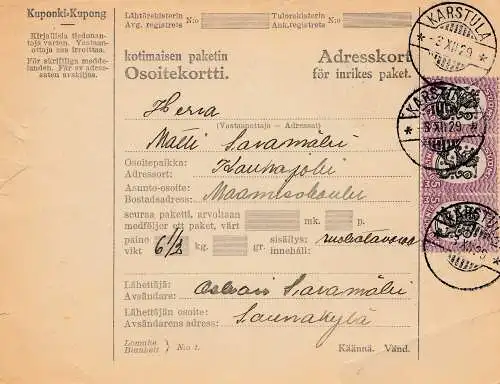 Kuponki-Kupong
Kirjallisia tiedonan-
toja varten. Vastaan-
ottaja saa irroittaa.
För skriftliga medde-
landen. Får av adres-
saten avskiljas.
Lähtörekisterin
Avg. registrets N:o
Tulorekisterin
Ank. registrets N:o
kotimaisen paketin
Osoitekortti.
Adresskort
för inrikes paket.
KARSTULA
3 XII 29
KARSTULA
3 XII 29
KARSTULA
3 XII 29
Herra
Matti Savamäki
(Vastaanottaja - Adressat)
Osoitepaikka:
Adressort: Kauhajoki
Asunto-osoite:
Bostadsadress: Maamieskoulu
seuraa paketti, arvoltaan
medföljer ett paket, värt mk. p.
paino
vikt 6 1/2 kg. gr. sisällys:
innehåll: ruokatavaraa
Lähettäjä:
Avsändare: Savamäki
Lähettäjän osoite:
Avsändarens adress: Saunakylä
Lomake
Blankett N:o 1.
Käännä. Vänd.